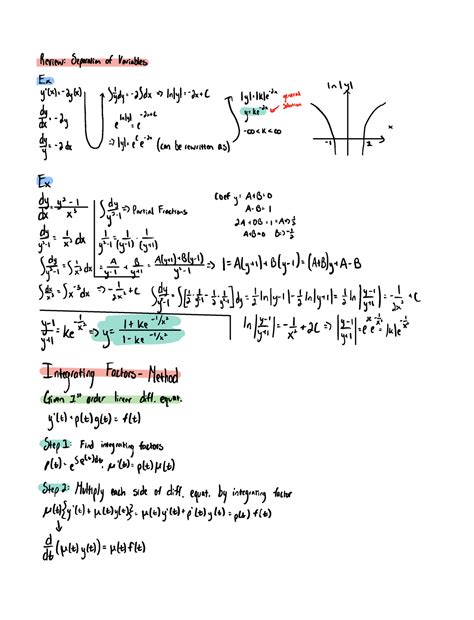 Review: Separation of Variables
Ex
y'(x) = -2y(x)
dy/dx = -2y
dy/y = -2dx
∫1/y dy = -2∫dx ⇒ ln|y| = -2x + C
e^ln|y| = e^-2x+C
⇒ |y| = e^c e^-2x (can be rewritten as)
|y| = |k|e^-2x
y = ke^-2x
general solution
-∞ < k < ∞
ln|y|
x
-1
Ex
dy/dx = y²-1/x³
dy/y²-1 = 1/x³ dx
∫dy/y²-1 = ∫1/x³ dx
∫dy/y²-1 ⇒ Partial Fractions
1/y²-1 = 1/(y-1) · 1/(y+1)
= A/y-1 + B/y+1 = A(y+1)+B(y-1)/y²-1 ⇒ 1 = A(y+1) + B(y-1) = (A+B)y + A - B
Coef y: A+B=0
A-B=1
2A+0B=1 ⇒ A=1/2
A+B=0 B=-1/2
∫dx/x³ = ∫x^-3 dx ⇒ -1/2x² + C
∫dy/y²-1 = ∫[1/2 · 1/y-1 - 1/2 · 1/y+1]dy = 1/2 ln|y-1| - 1/2 ln|y+1| = 1/2 ln|y-1/y+1| = -1/2x² + C
y-1/y+1 = ke^-1/x² ⇒ y = 1+ke^-1/x² / 1-ke^-1/x²
ln|y-1/y+1| = -1/x² + 2C ⇒ |y-1/y+1| = e^2c e^-1/x² = |k|e^-1/x²
Integrating Factors - Method
Given 1st order linear diff. equat.
y'(t) + p(t)y(t) = f(t)
Step 1: Find integrating factors
μ(t) = e^∫p(t)dt, μ'(t) = p(t)μ(t)
Step 2: Multiply each side of diff. equat. by integrating factor
d/dt (μ(t)y(t)) = μ(t)f(t)